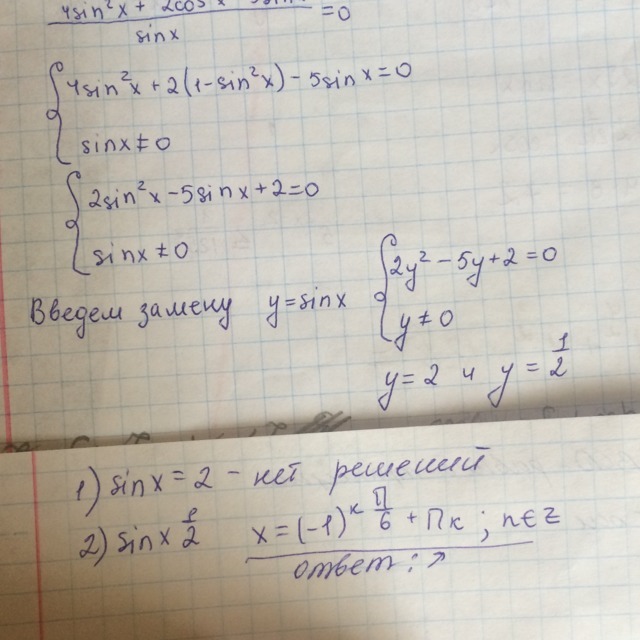 4sin²x + 2cos²x - 5sinx
sinx
=0
4sin²x+2(1-sin²x)-5sinx=0
sinx≠0
2sin²x-5sinx+2=0
sinx≠0
Введем замену y=sinx
2y²-5y+2=0
y≠0
y=2 и y=1/2
1) sinx=2 - нет решений
2) sinx 1/2 x=(-1)^к П/6 + Пк ; n∈Z
ответ: ↗